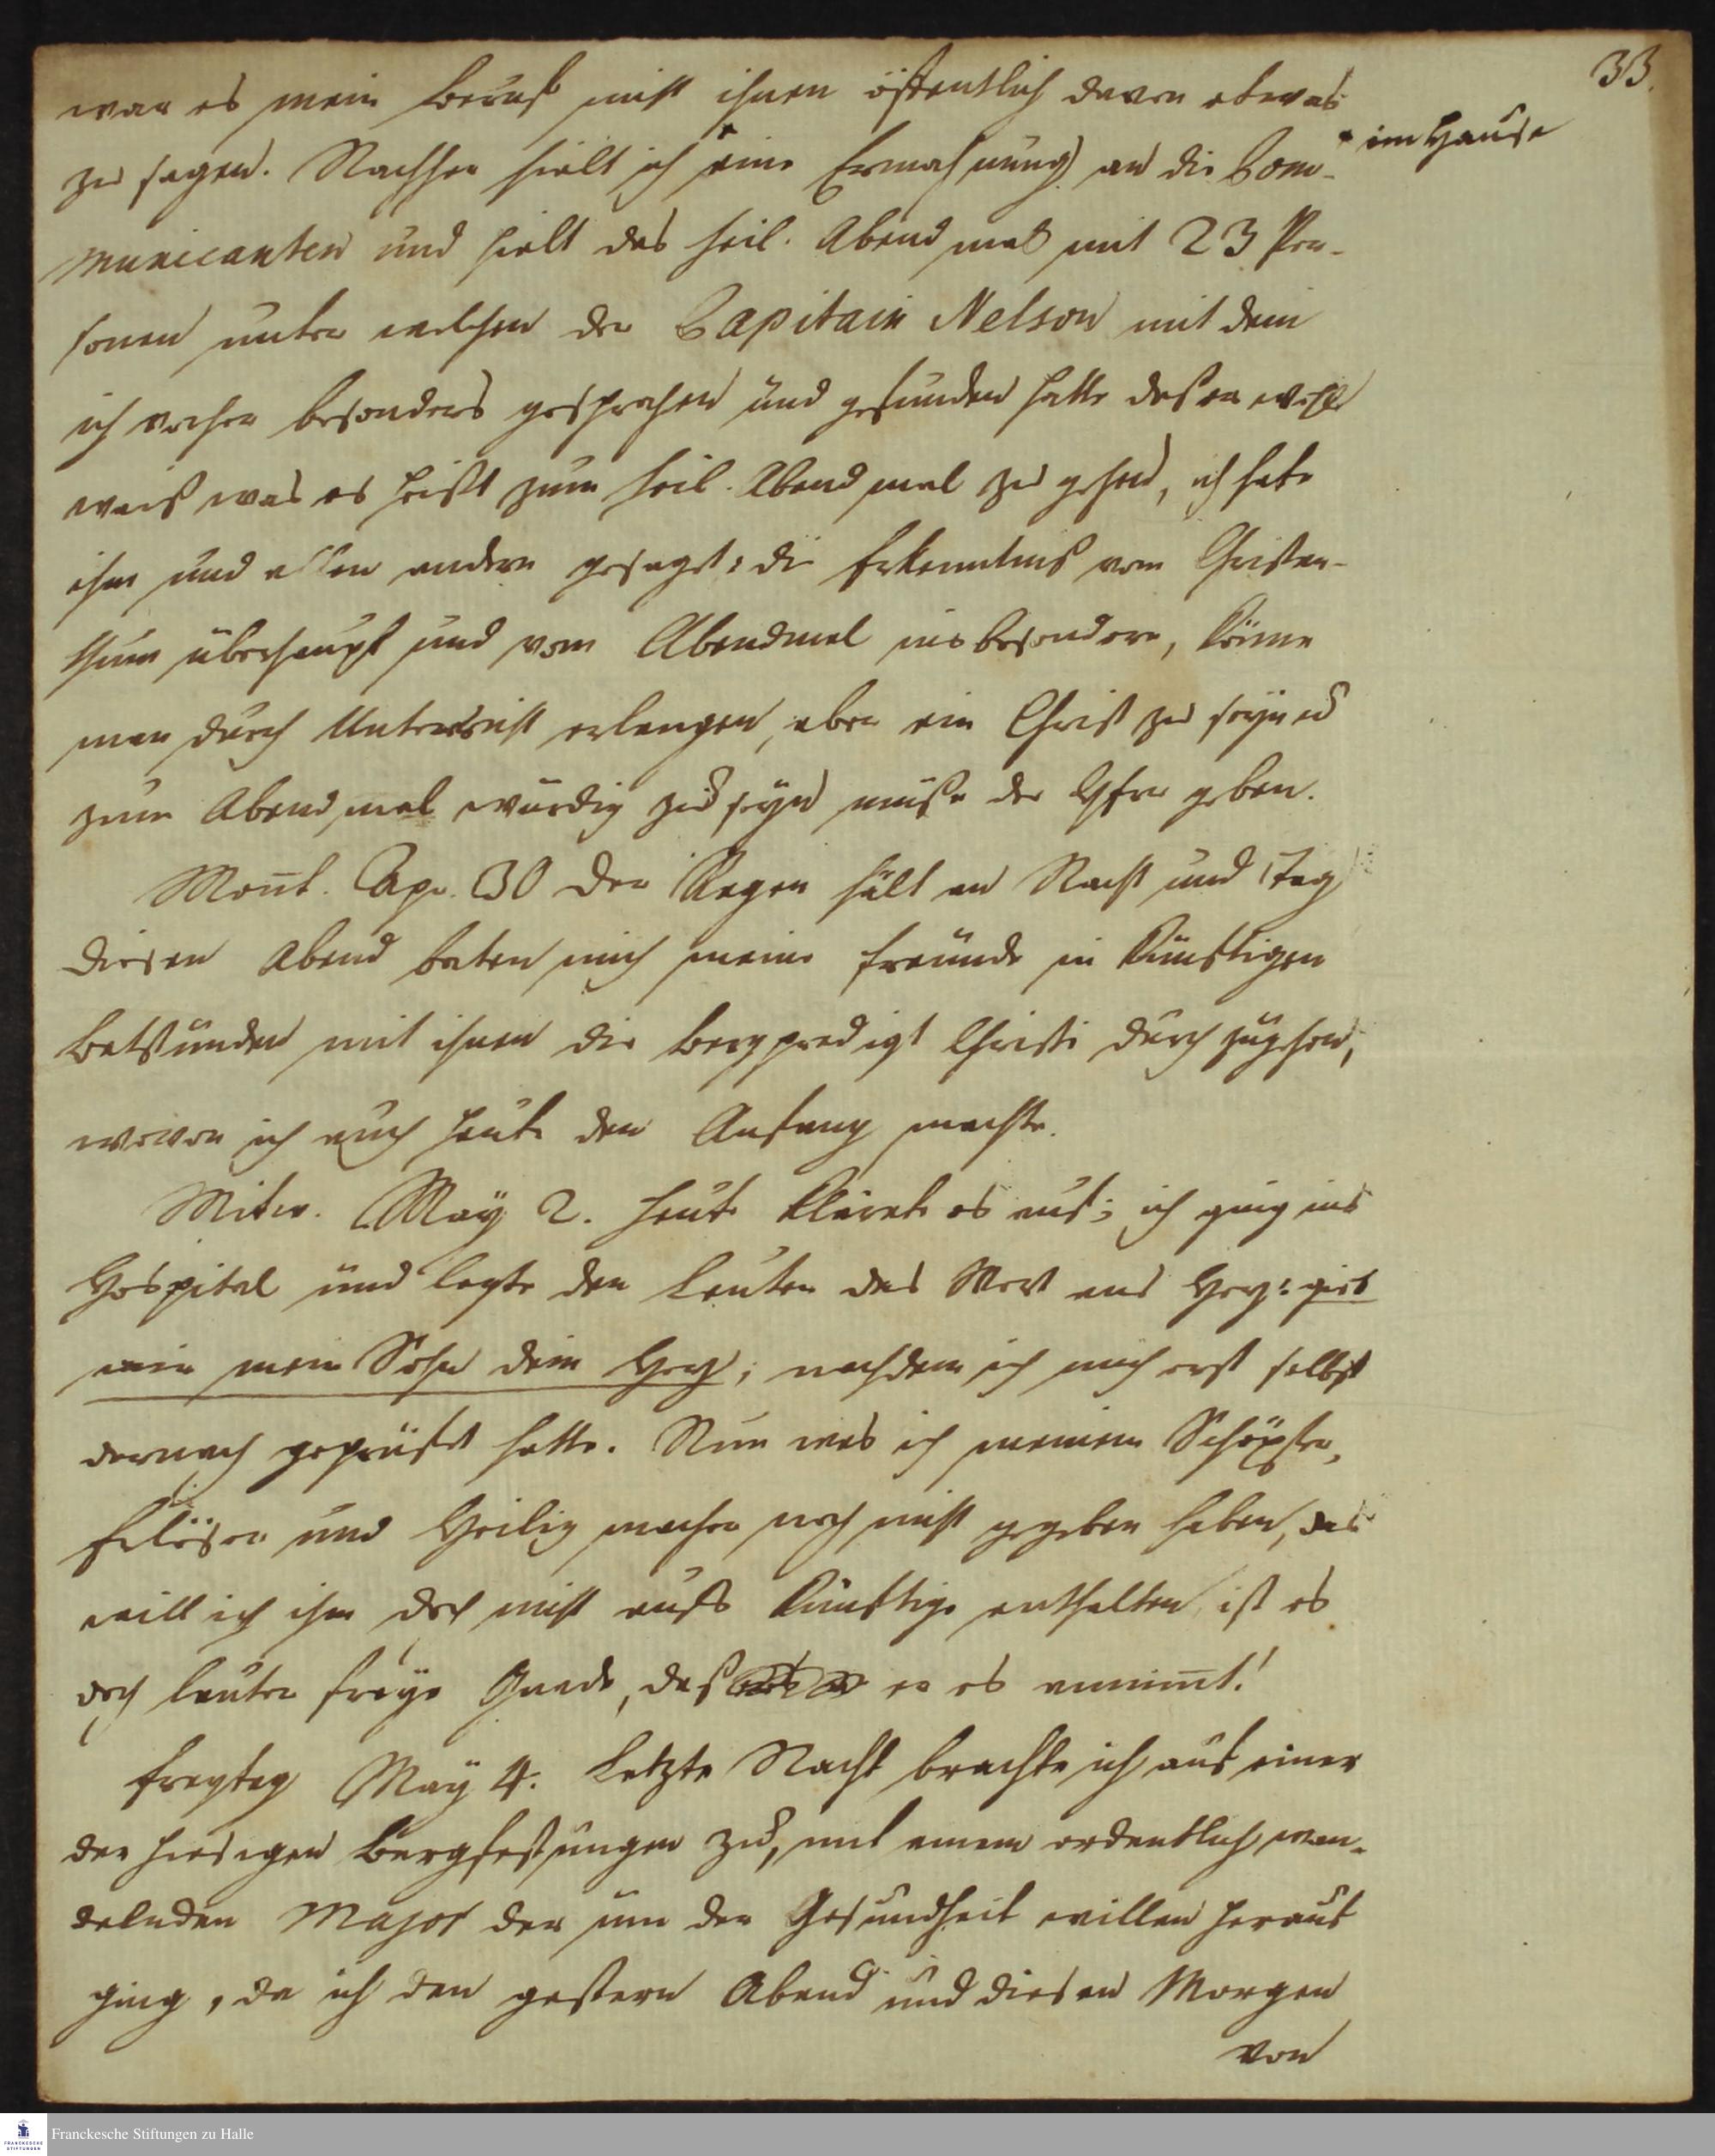 33.
war es mein Beruf nicht ihnen öffentlich davon etwas
zu sagen. Nachher hielt ich * eine Ermahnung an die Com-
* im Hause
municanten und hielt das heil. Abendmal mit 23 Per-
sonen unter welchen der Capitain Nelson mit dem
ich vorher besonders gesprochen und gefunden hatte daß er wohl
weiß was es heißt zum heil. Abendmal zu gehen, ich habe
ihm und allen andern gesagt: die Erkenntniß vom Christen-
thum überhaupt und vom Abendmal insbesondere, könne
man durch Unterricht erlangen, aber ein Christ zu seyn u
zum Abendmal würdig zu seyn müße der HErr geben.
Mont. Apr. 30 Der Regen hält an Nacht und Tag
diesen Abend baten mich meine Freunde in künftigen
Betstunden mit ihnen die Bergpredigt Christi durchzugehen,
wovon ich auch heute den Anfang machte.
Mitw. May 2. Heute klärete es auf; ich ging ins
Hospital und legte den Leuten das Wort ans Herz: gieb
mir mein Sohn dein Herz; nachdem ich mich erst selbst
darnach geprüfet hatte. Nun was ich meinem Schöpfer,
Erlöser und Heiligmacher noch nicht gegeben habe, das
will ich ihm doch nicht aufs künftige enthalten, ist es
doch lauter freye Gnade, daß er es annimt!
Freytag May 4. Letzte Nacht brachte ich auf einer
der hiesigen Bergfestungen zu, mit einem ordentlich wan-
delnden Major der um der Gesundheit willen herauf
ging, da ich den gestern Abend und diesen Morgen
von
Franckesche Stiftungen zu Halle